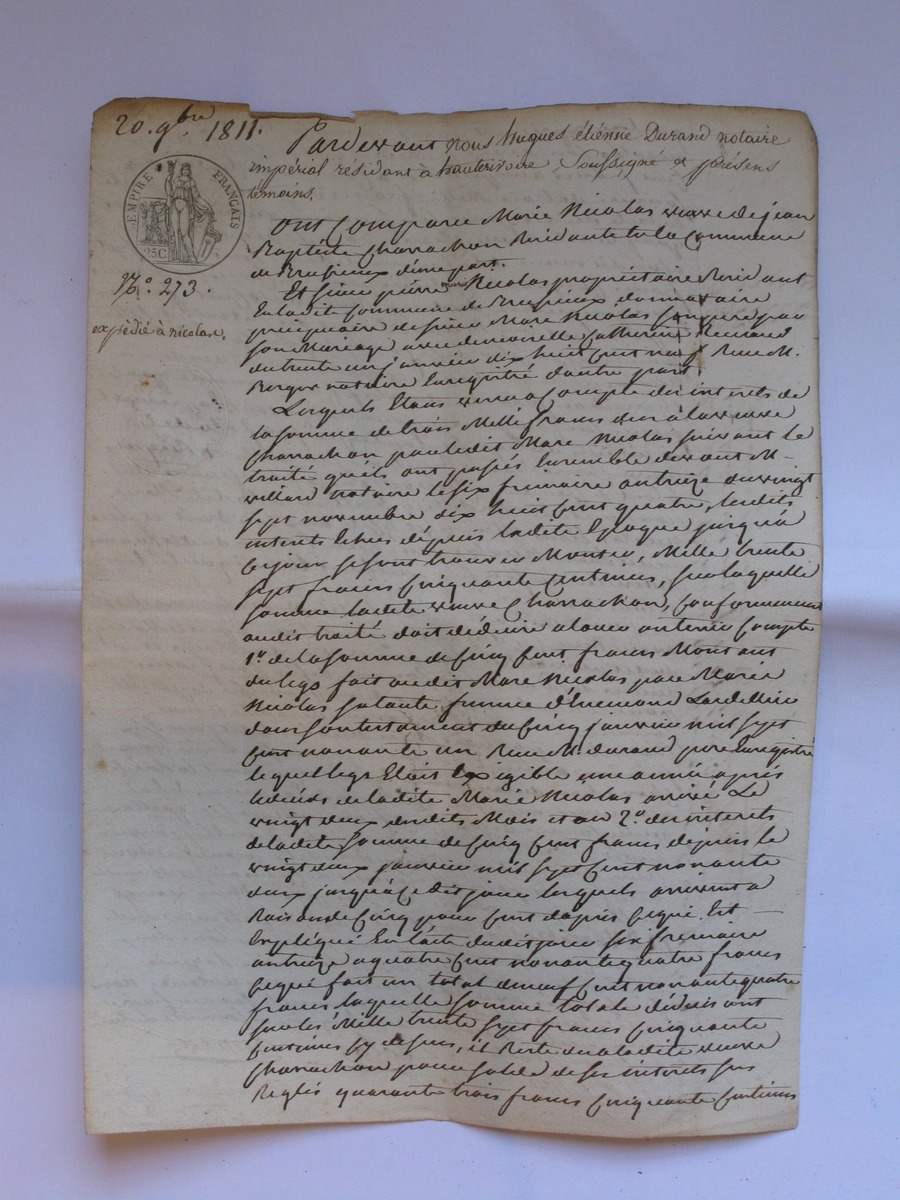 20. 9bre 1811.
EMPIRE FRANÇAIS
25C
No. 273.
expédié à nicolas.
Pardevant nous hugues étiénne Durand notaire
impérial résidant à hauterivoire, soussigné et présens
temoins.
Ont Comparu Marie Nicolas veuve de jean
Baptiste Charrachon Residante en la Commune
de Brusieux d'une part.
Et sieur pierre marie Nicolas propriétaire Resid ant
En ladite Commune de Brusieux donnataire
precipuaire de sieur Marc Nicolas son pere par
son Mariage avec demoiselle Catherine
du trente un janvier dix huit Cent neuf Reçu M.
Berger notaire Enregistré d'autre part.
Lesquels Etant venu a Compte des interets de
la somme de trois Mille francs dus a la veuve
Charrachon par ledit Marc Nicolas suivant le
traité qu'ils ont passés Ensemble devant M.
notaire le six frimaire an treize ou vingt
sept novembre dix huit Cent quatre, lesdits
interets Echus dépuis ladite Epoque jusqu'à
Ce jour se sont trouvés Monter, Mille trente
sept francs Cinquante Centimes, sur laquelle
somme ladite veuve Charrachon, Conformement
audit traité doit déduire a louer ou tenir Compte
1o. de la somme de Cinq Cent francs Montant
du legs fait audit Marc Nicolas par Marie
Nicolas sa tante femme d'hremond Lardellier
dans son testament du Cinq janvier mil sept
Cent nonante un Reçu M. durand pere Enregistré
lequel legs Etait Exigible une année après
le décés de ladite Marie Nicolas arrivé Le
vingt deux desdits Mois et an 2o. des interets
de ladite somme de Cinq Cent francs depuis le
vingt deux janvier mil sept Cent nonante
deux jusqu'à Ce dit jour lesquels arrivent a
Raison de Cinq pour Cent daprés Ce qui Est
Expliqué En l'acte dudit jour six frimaire
an treize a quatre Cent nonante quatre francs
Ce qui fait un total de neuf Cent nonante quatre
francs laquelle somme totale déduis ant
sur les Mille trente sept francs Cinquante
Centimes cy dessus, il Reste du a ladite veuve
Charrachon pour solde de ses interets sus
Reglés quarante trois francs Cinquante Centimes